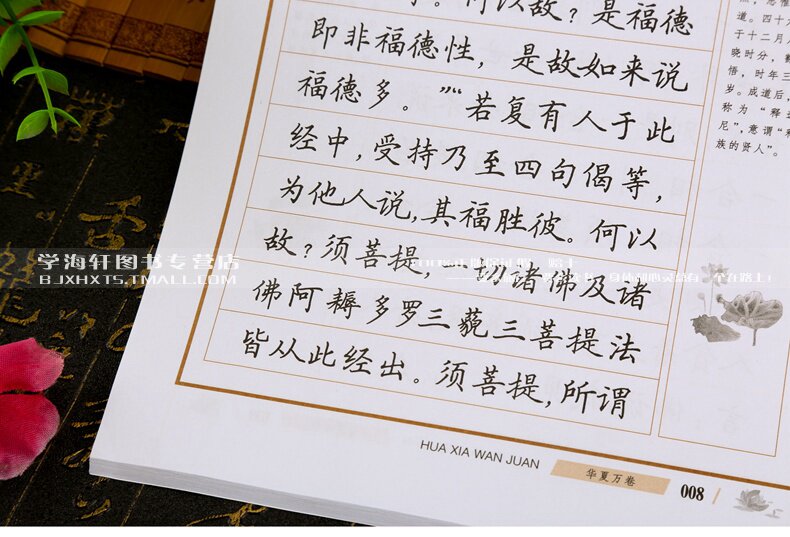 何以故？是福德
即非福德性，是故如来说
福德多。”“若复有人于此
经中，受持乃至四句偈等，
为他人说，其福胜彼。何以
故？须菩提，一切诸佛及诸
佛阿耨多罗三藐三菩提法
皆从此经出。须菩提，所谓
道。四十
于十二月
晓时分，
悟，时年三
岁。成道后，
称为“释迦
尼”，意谓“释
族的贤人”。
学海轩图书专营店
BJXHXTS.TMALL.COM
身体和心灵总有一个在路上！
HUA XIA WAN JUAN
华夏万卷
008